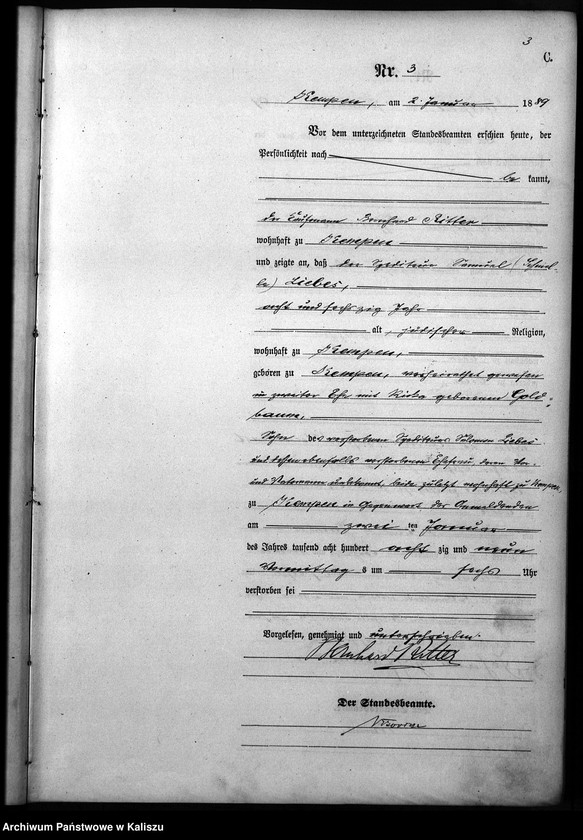 3
C.
Nr. 3
Kempen, am 2. Januar 1889
Vor dem unterzeichneten Standesbeamten erschien heute, der
Persönlichkeit nach
be kannt,
der Kaufmann Bernhard Ritter
wohnhaft zu Kempen
und zeigte an, daß der Spediteur Samuel (Schmel-
ke) Liebes,
acht und sechszig Jahr
alt, jüdischer Religion,
wohnhaft zu Kempen,
geboren zu Kempen, verheirathet gewesen
in zweiter Ehe mit Riwka geborenen Gold-
baum,
Sohn des verstorbenen Spediteurs Salomon Liebes
und dessen ebenfalls verstorbenen Ehefrau, deren Vor-
und Vatersname unbekannt, beide zuletzt wohnhaft zu Kempen,
zu Kempen in Gegenwart des Anmeldenden
am zwei ten Januar
des Jahres tausend acht hundert acht zig und neun
Vormittag s um sechs Uhr
verstorben sei
Vorgelesen, genehmigt und unterschrieben.
Bernhard Ritter
Der Standesbeamte.
Archiwum Państwowe w Kaliszu